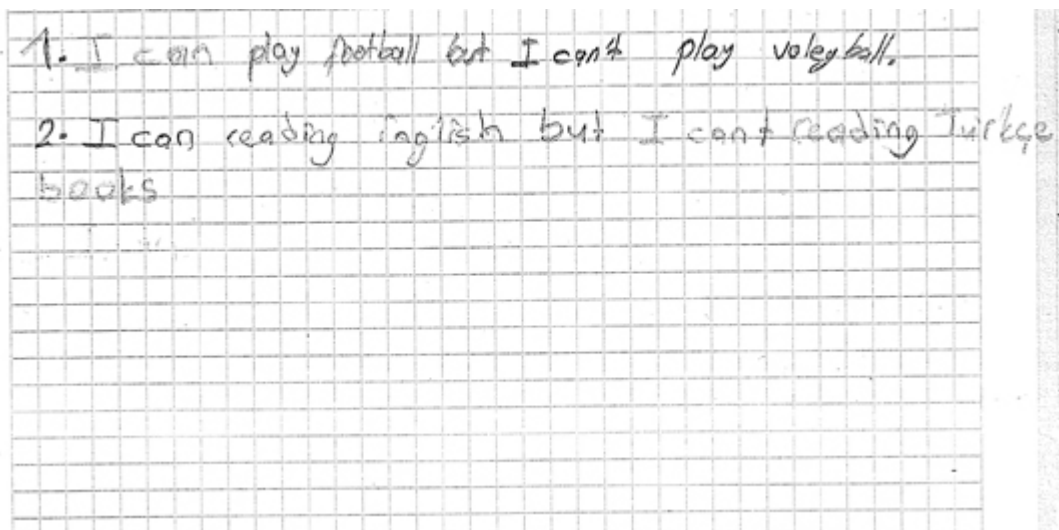 1. I can play football but I can't play voleyball.
2. I can reading inglish but I cant reading Türkçe
books